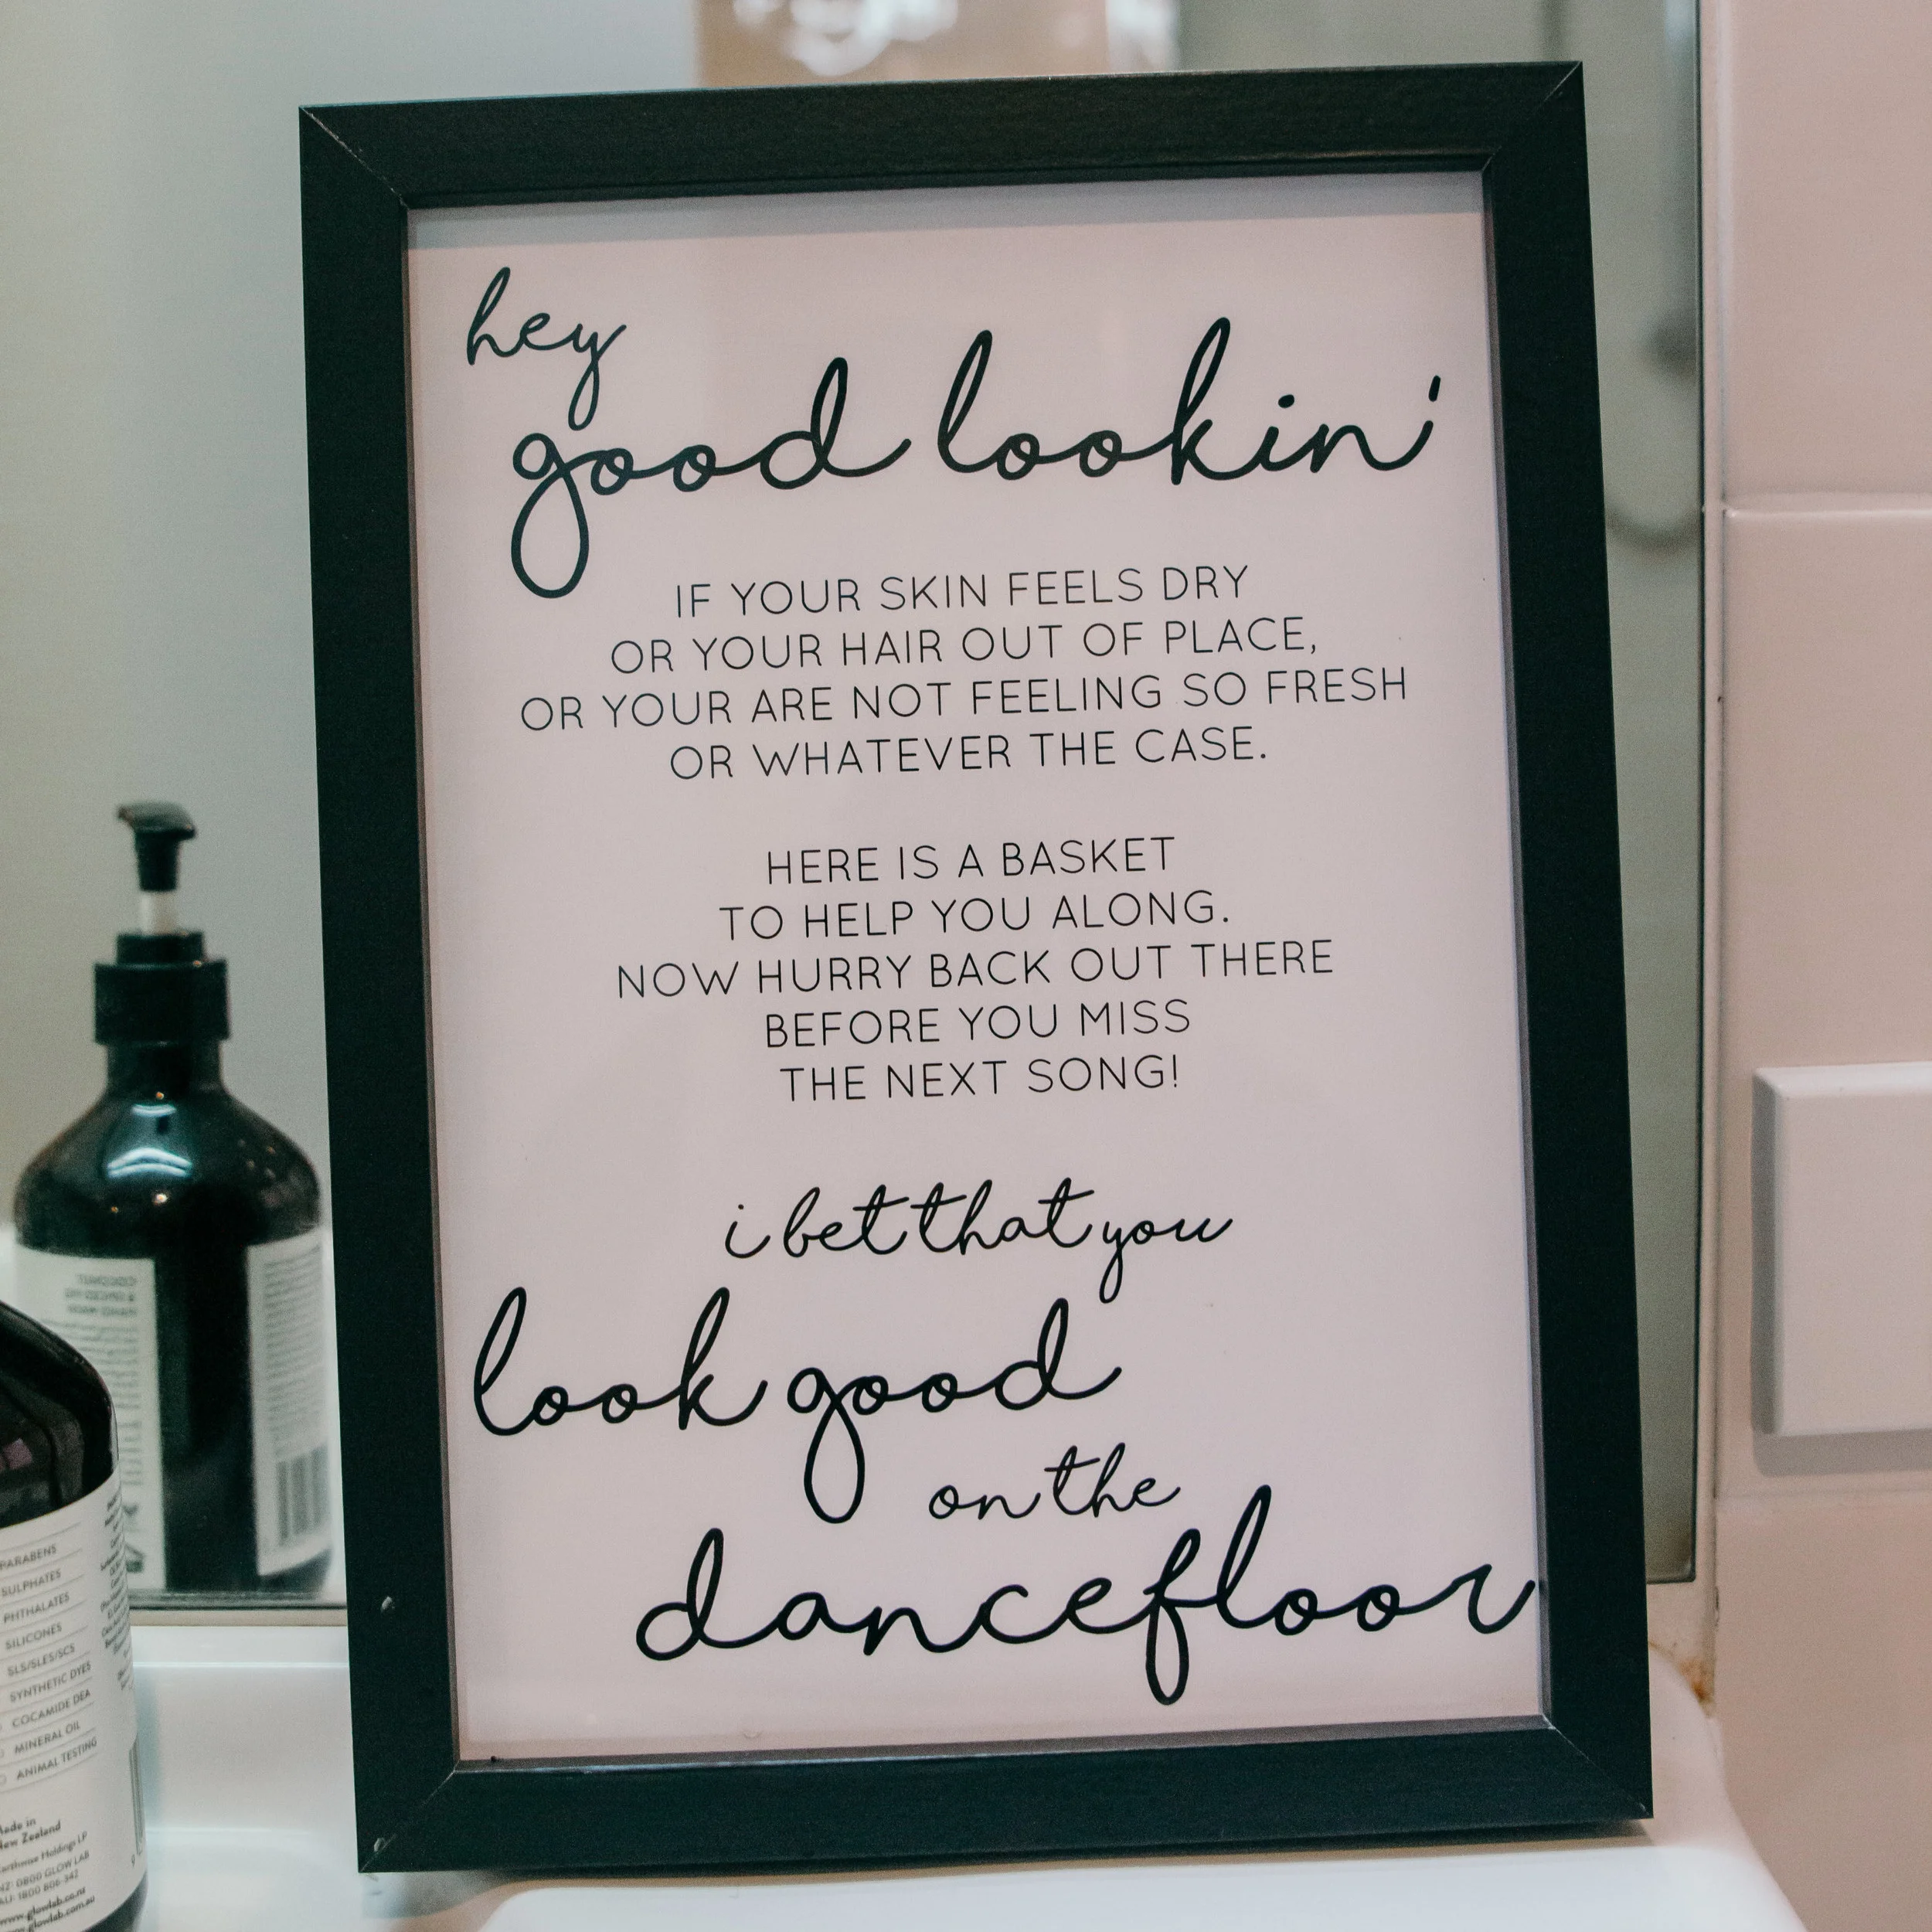 hey
good lookin'
IF YOUR SKIN FEELS DRY
OR YOUR HAIR OUT OF PLACE,
OR YOUR ARE NOT FEELING SO FRESH
OR WHATEVER THE CASE.
HERE IS A BASKET
TO HELP YOU ALONG.
NOW HURRY BACK OUT THERE
BEFORE YOU MISS
THE NEXT SONG!
i bet that you
look good
on the
dancefloor
PARABENS
SULPHATES
PHTHALATES
SILICONES
SLS/SLES/SCS
SYNTHETIC DYES
COCAMIDE DEA
MINERAL OIL
ANIMAL TESTING
Made in
New Zealand
Earthwise Holdings LP
NZ: 0800 GLOW LAB
AU: 1800 806 342
www.glowlab.co.nz
www.glowlab.com.au